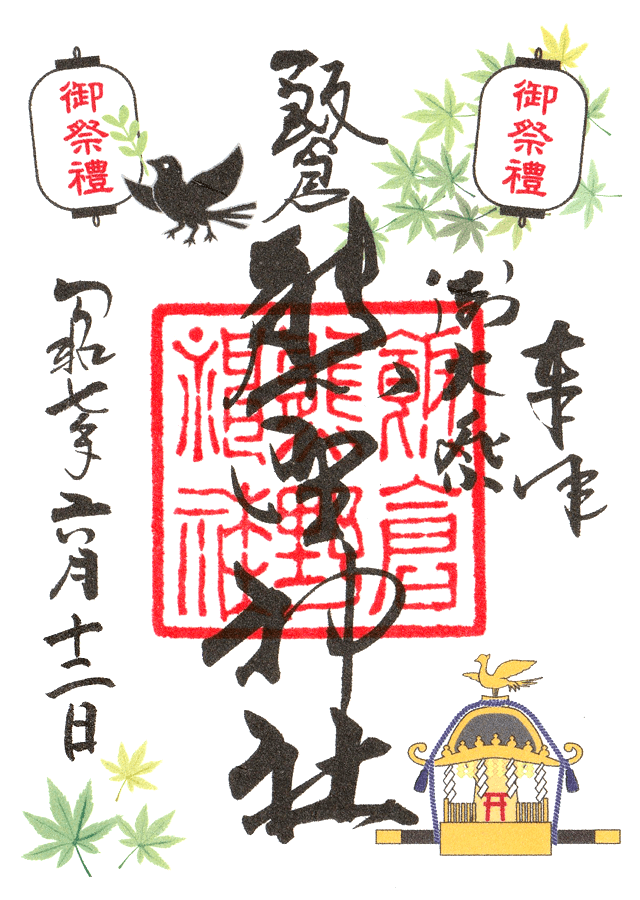 御祭禮
御祭禮
奉拝
御大祭
飯倉
熊野神社
飯倉熊野神社
令和七年六月十二日